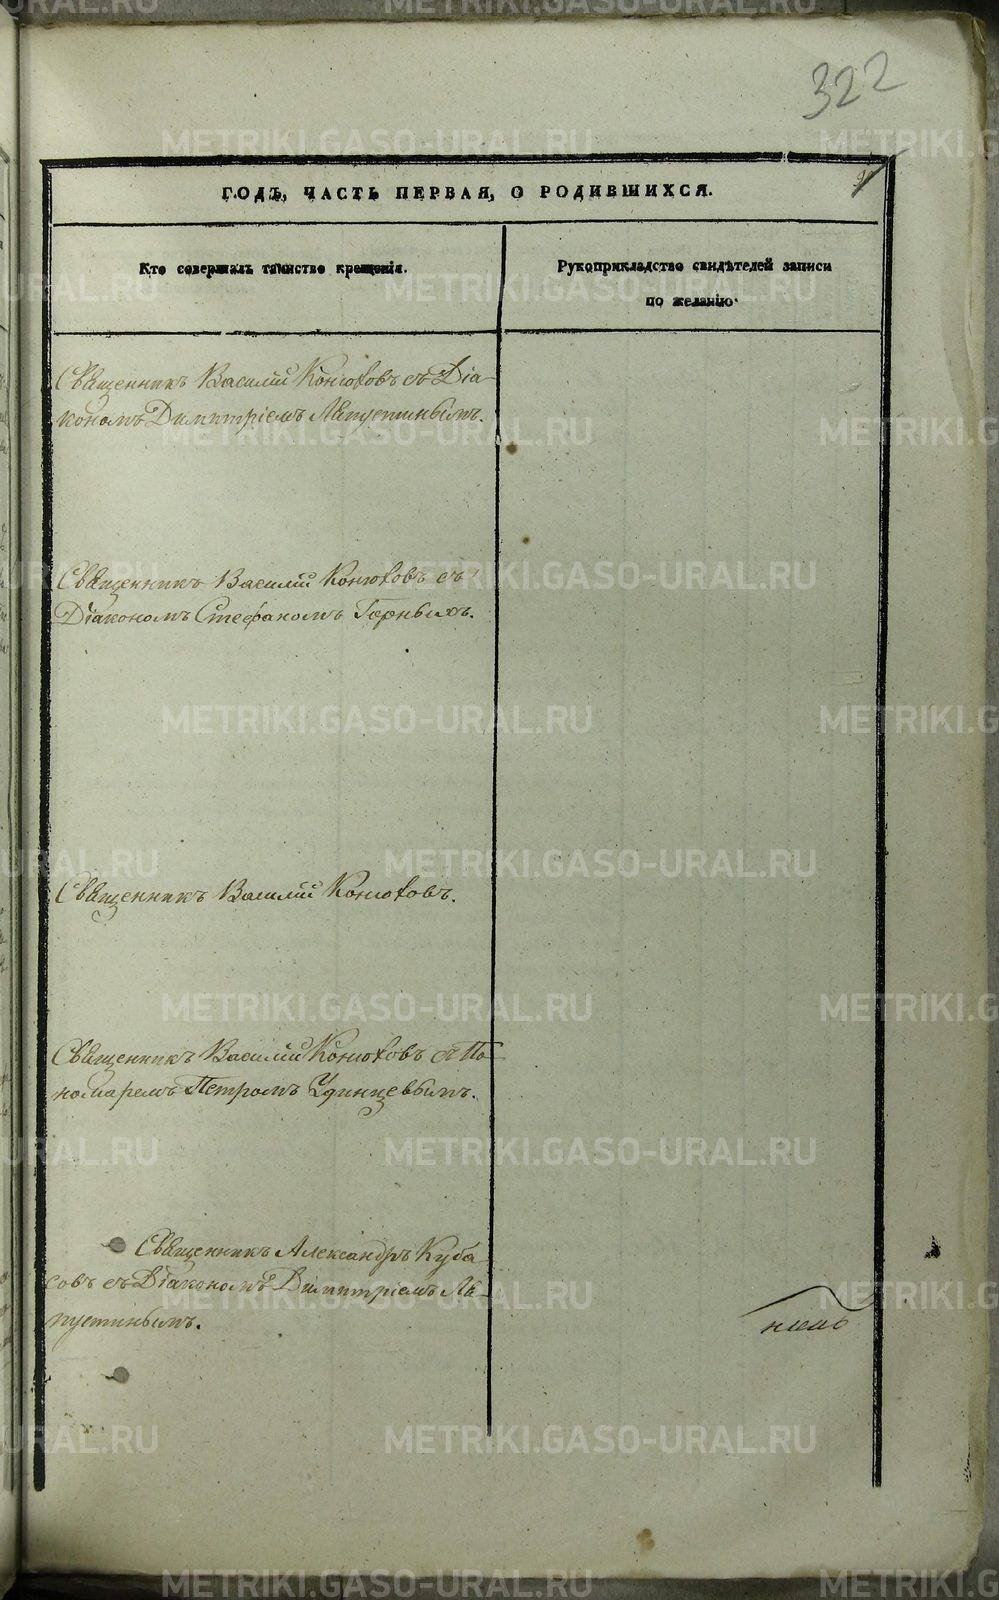 322
ГОДЪ, ЧАСТЬ ПЕРВАЯ, О РОДИВШИХСЯ.
Кто совершалъ таинство крещенія.
Рукоприкладство свидѣтелей записи
по желанію.
Священникъ Василій Конюховъ съ Діа-
кономъ Димитріемъ Ляпустинымъ.
Священникъ Василій Конюховъ съ
Діакономъ Стефаномъ Горныхъ.
Священникъ Василій Конюховъ.
Священникъ Василій Конюховъ съ По-
номаремъ Петромъ Удинцевымъ.
Священникъ Александръ Куба-
совъ съ Діакономъ Димитріемъ Ля-
пустинымъ.
METRIKI.GASO-URAL.RU